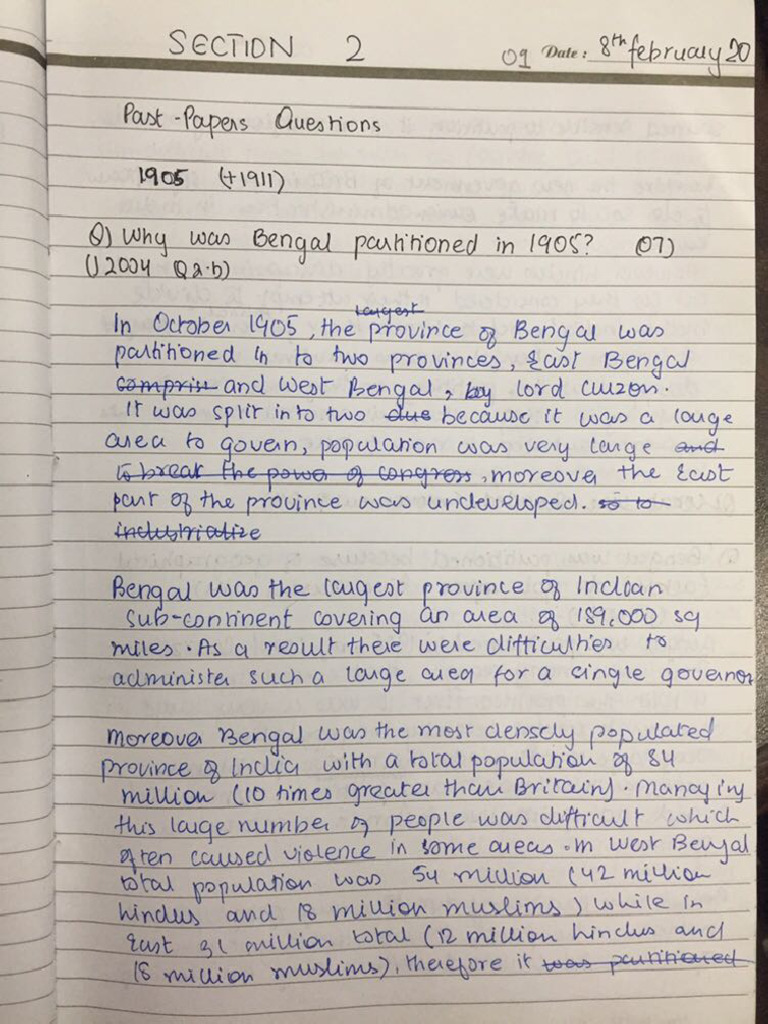 SECTION 2 01 Date: 8th february 20
Past-Papers Questions
1905 (+1911)
Q) Why was Bengal partitioned in 1905? (07)
(J2004 Q2.b)
largest
In October 1905, the province of Bengal was
partitioned in to two provinces, East Bengal
comprise and West Bengal, by lord Curzon.
It was split into two due because it was a large
area to govern, population was very large and
to break the power of congress, moreover the East
part of the province was undeveloped. so to
industrialize
Bengal was the largest province of Indian
sub-continent covering an area of 189,000 sq
miles. As a result there were difficulties to
administer such a large area for a single governor
moreover Bengal was the most densely populated
province of India with a total population of 84
million (10 times greater than Britain). Managing
this large number of people was difficult which
often caused violence in some areas. In West Bengal
total population was 54 million (42 million
hindus and 18 million muslims) while in
East 31 million total (12 million hindus and
18 million muslims), therefore it was partitioned